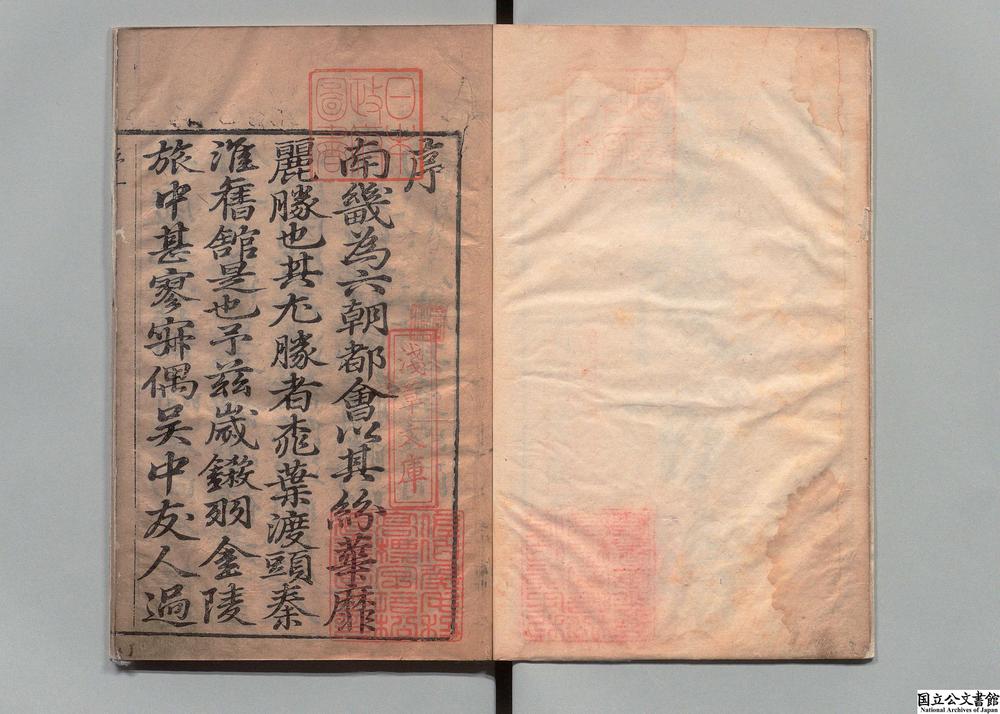 序
南畿為六朝都會以其紛華靡
麗勝也其尤勝者桃葉渡頭秦
淮舊舘是也予茲歲鎩羽金陵
旅中甚寥寂偶吴中友人過
日本
政府
圖書
淺草文庫
国立公文書館
National Archives of Japan